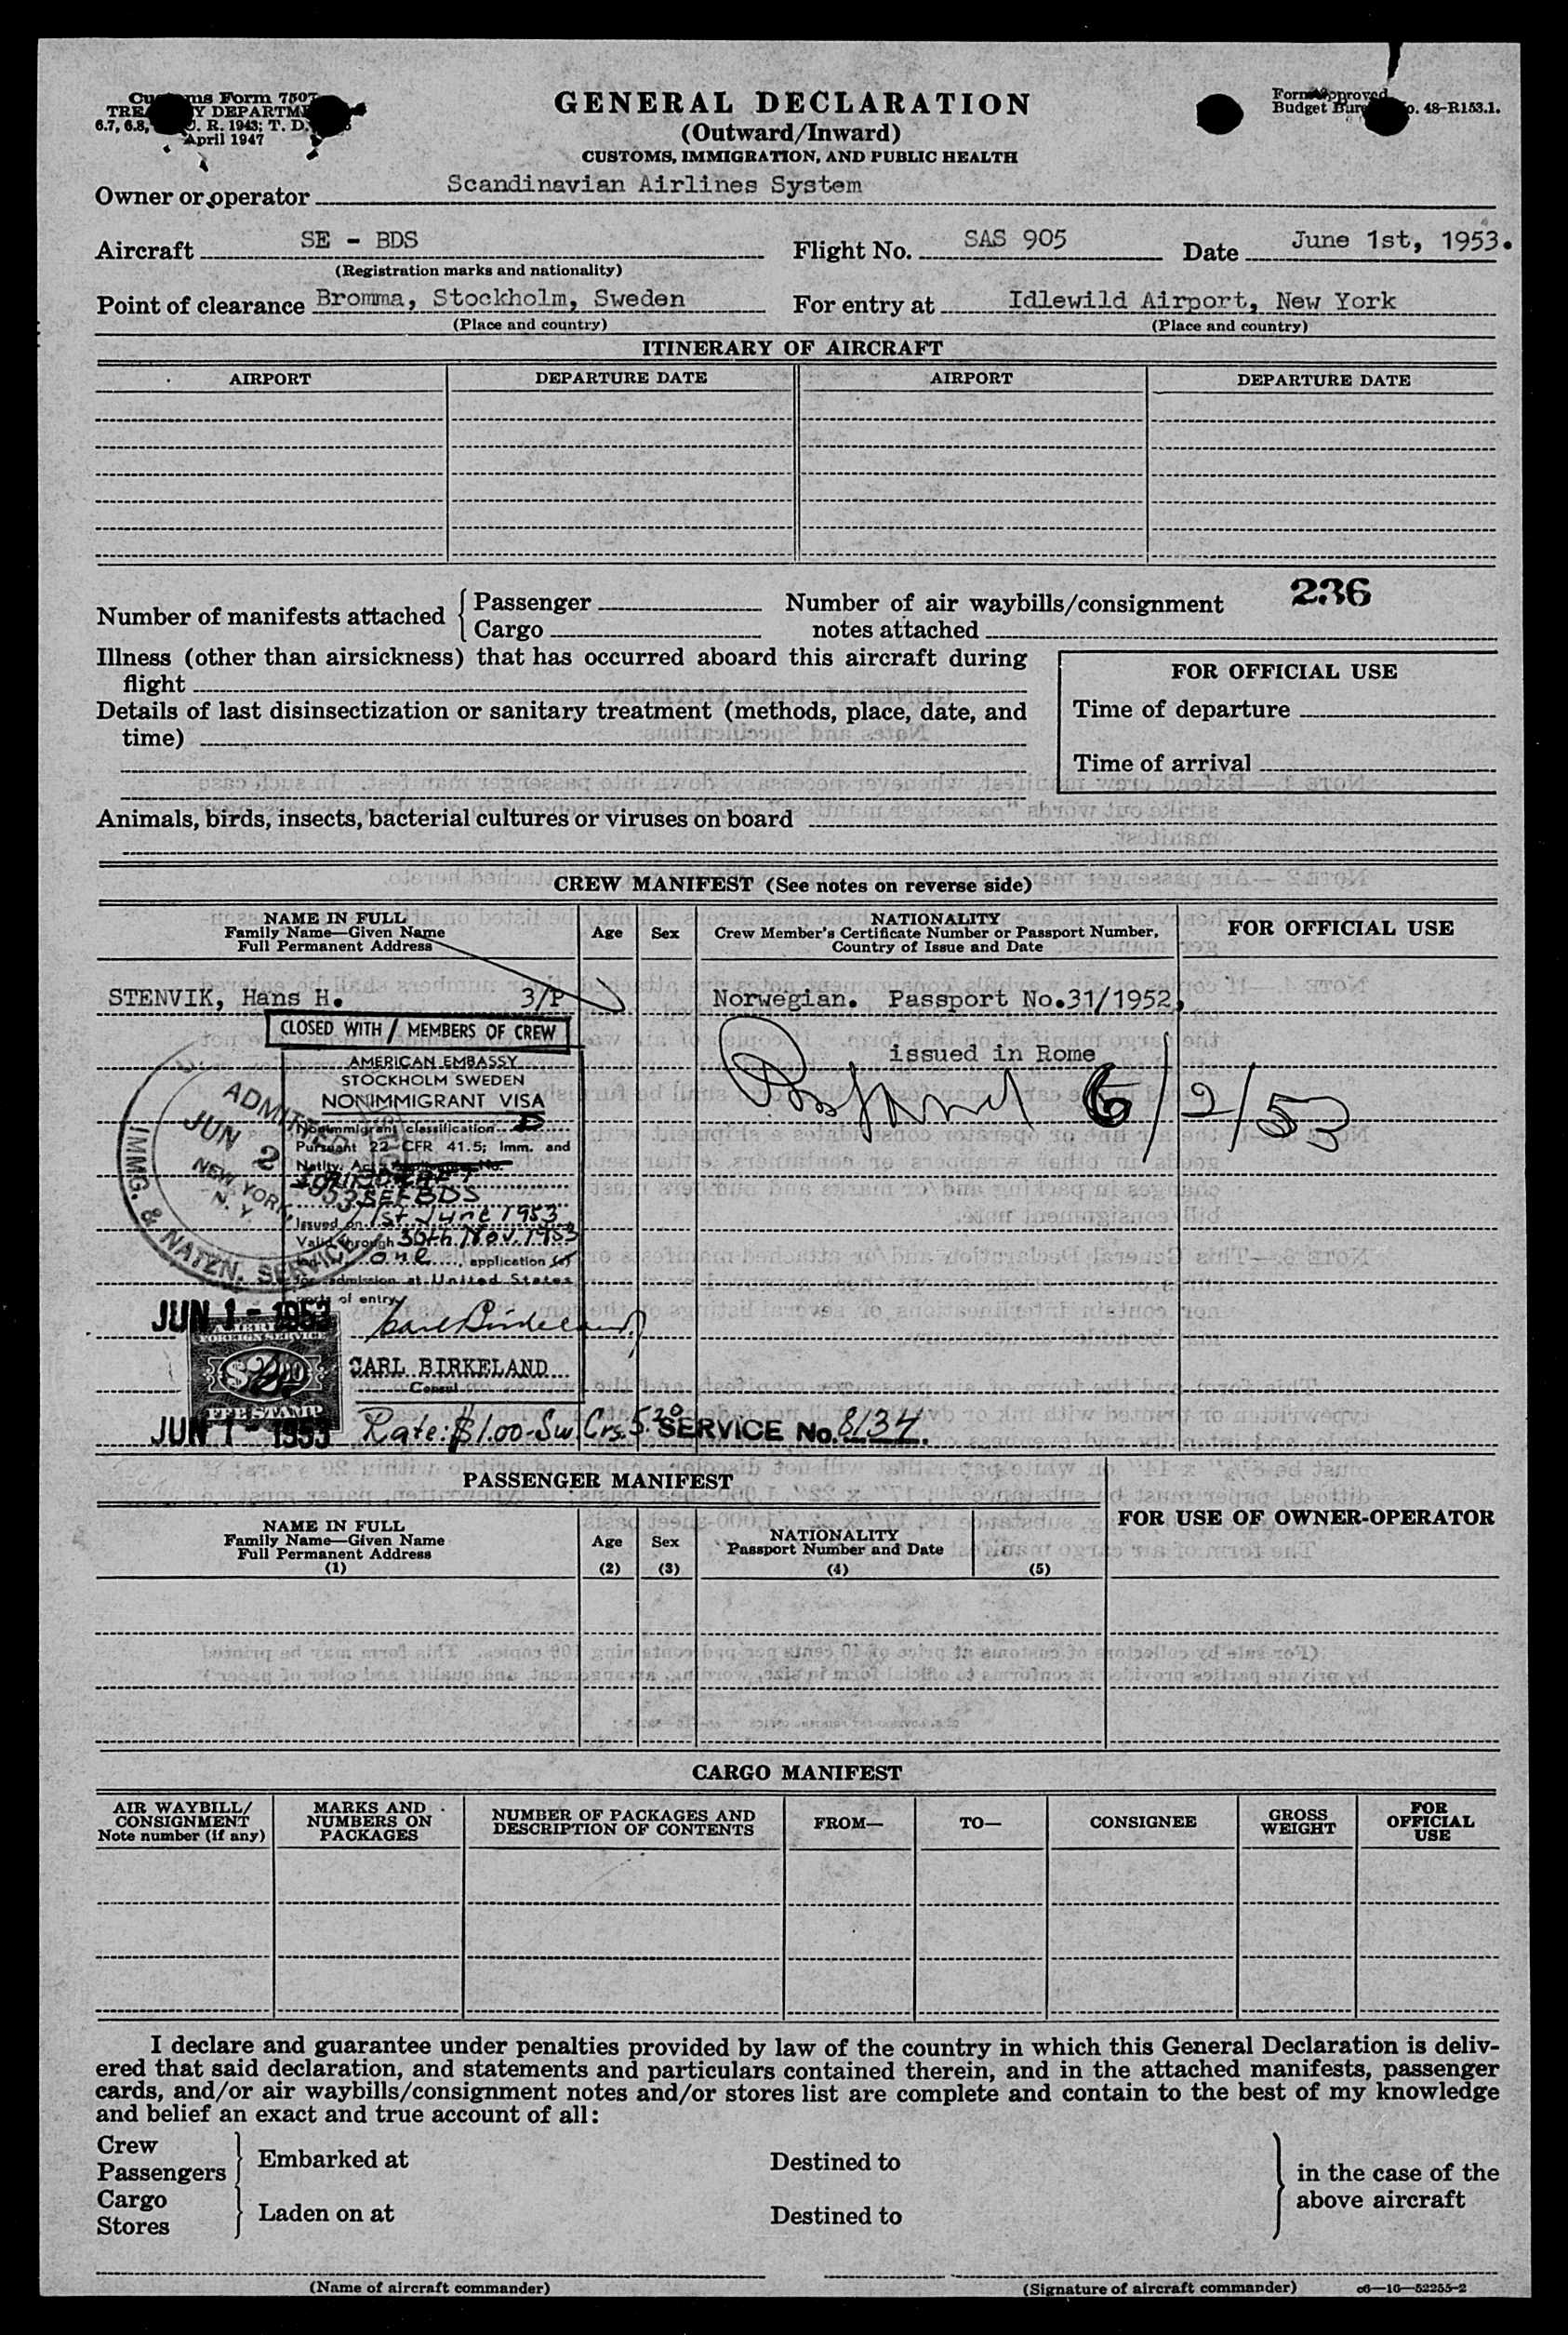 Customs Form 7507
TREASURY DEPARTMENT
6.7, 6.8, C. R. 1943; T. D.
April 1947
GENERAL DECLARATION
(Outward/Inward)
CUSTOMS, IMMIGRATION, AND PUBLIC HEALTH
Form Approved
Budget Bureau No. 48-R153.1.
Owner or operator Scandinavian Airlines System
Aircraft SE - BDS Flight No. SAS 905 Date June 1st, 1953.
(Registration marks and nationality)
Point of clearance Bromma, Stockholm, Sweden For entry at Idlewild Airport, New York
(Place and country) (Place and country)
ITINERARY OF AIRCRAFT
AIRPORT DEPARTURE DATE AIRPORT DEPARTURE DATE
236
Number of manifests attached Passenger Number of air waybills/consignment
Cargo notes attached
Illness (other than airsickness) that has occurred aboard this aircraft during
flight
FOR OFFICIAL USE
Details of last disinsectization or sanitary treatment (methods, place, date, and
time)
Time of departure
Time of arrival
Animals, birds, insects, bacterial cultures or viruses on board
CREW MANIFEST (See notes on reverse side)
NAME IN FULL
Family Name—Given Name
Full Permanent Address
Age
Sex
NATIONALITY
Crew Member's Certificate Number or Passport Number,
Country of Issue and Date
FOR OFFICIAL USE
STENVIK, Hans H. 3/P Norwegian. Passport No.31/1952,
issued in Rome
6/2/53
CLOSED WITH / MEMBERS OF CREW
AMERICAN EMBASSY
STOCKHOLM SWEDEN
NONIMMIGRANT VISA
Nonimmigrant classification D
Pursuant 22 CFR 41.5; Imm. and
Natlty. Act
SEEBDS
Issued on 1st June 1953
Valid through 30th Nov. 1953
for one application (s)
for admission at United States
ports of entry
Carl Birkeland
CARL BIRKELAND
Consul
ADMITTED
JUN 2 1953
NEW YORK, N. Y.
IMMG. & NATZN. SERVICE
JUN 1 - 1953
AMERICAN
FOREIGN SERVICE
$2.00
FEE STAMP
JUN 1 - 1953
Rate: $1.00-Sw. Crs. 5.20 SERVICE No. 8134.
PASSENGER MANIFEST
NAME IN FULL
Family Name—Given Name
Full Permanent Address
(1)
Age
(2)
Sex
(3)
NATIONALITY
Passport Number and Date
(4) (5)
FOR USE OF OWNER-OPERATOR
CARGO MANIFEST
AIR WAYBILL/
CONSIGNMENT
Note number (if any)
MARKS AND
NUMBERS ON
PACKAGES
NUMBER OF PACKAGES AND
DESCRIPTION OF CONTENTS
FROM—
TO—
CONSIGNEE
GROSS
WEIGHT
FOR
OFFICIAL
USE
I declare and guarantee under penalties provided by law of the country in which this General Declaration is deliv-
ered that said declaration, and statements and particulars contained therein, and in the attached manifests, passenger
cards, and/or air waybills/consignment notes and/or stores list are complete and contain to the best of my knowledge
and belief an exact and true account of all:
Crew
Passengers
Embarked at Destined to
Cargo
Stores
Laden on at Destined to
in the case of the
above aircraft
(Name of aircraft commander) (Signature of aircraft commander) c6—16—52255-2